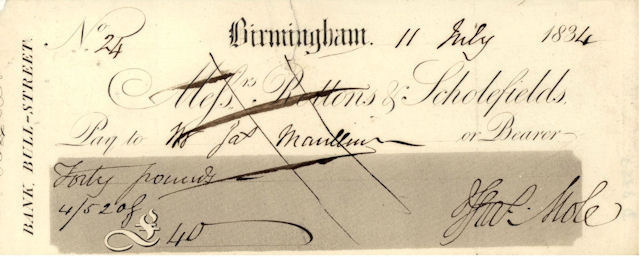 BANK BULL-STREET.
No. 24 Birmingham. 11 July 1834
Messrs. Rottons & Scholefields.
Pay to Mr Jas or Bearer
Forty pounds
4/520f
£ 40
Mole